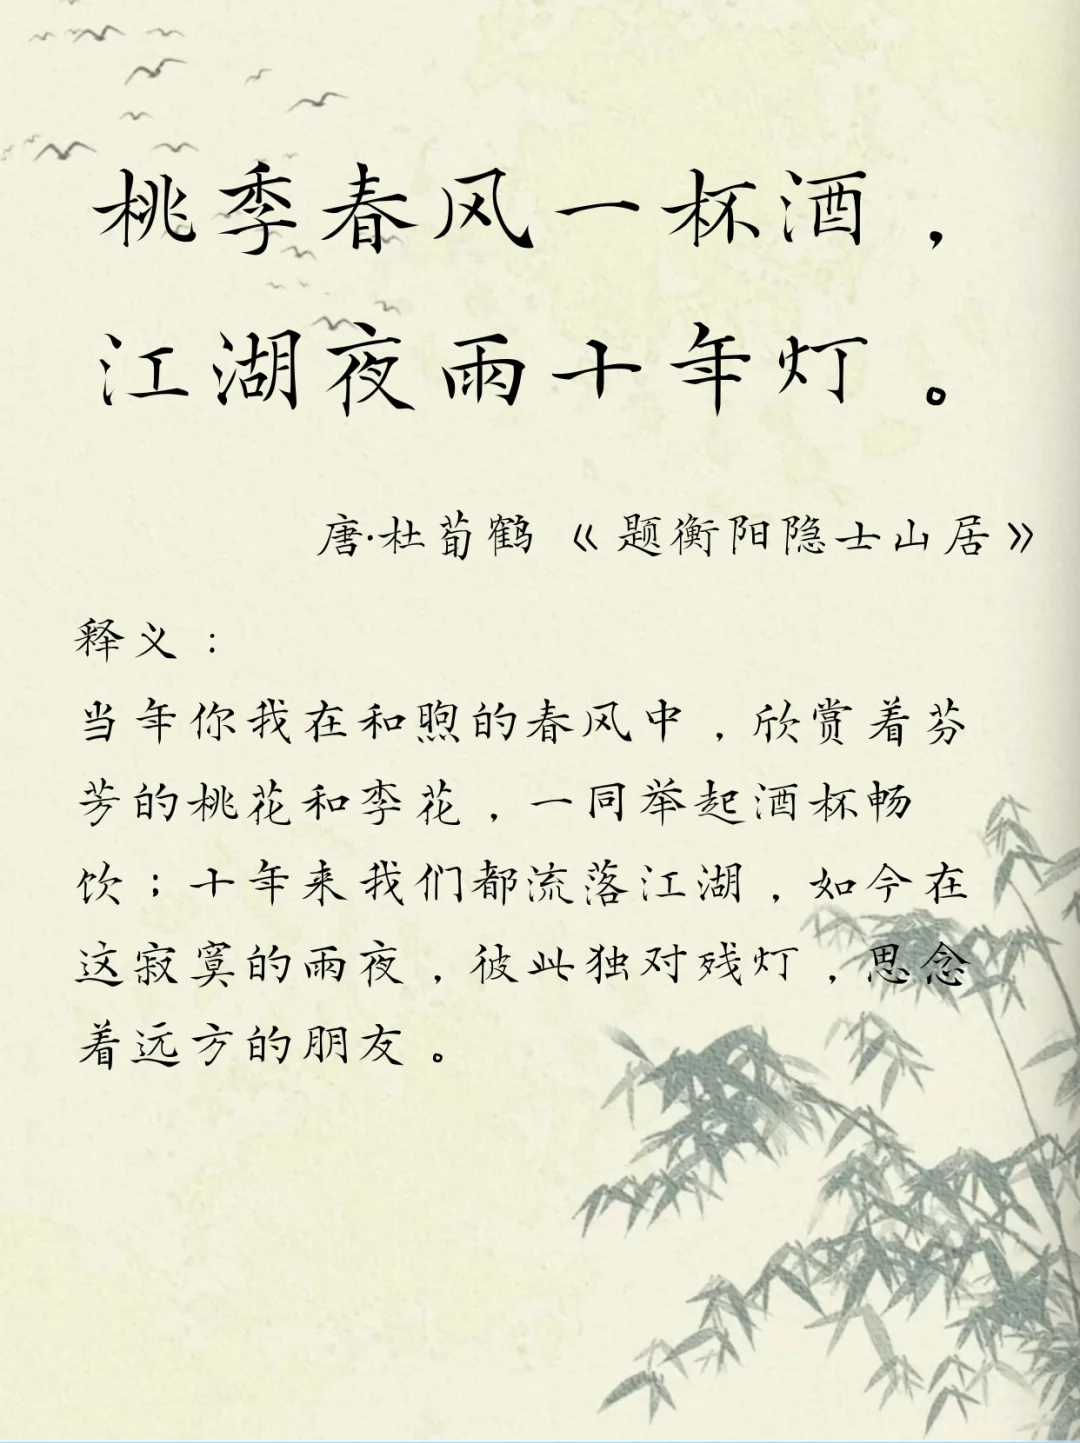 桃季春风一杯酒，
江湖夜雨十年灯。
唐·杜荀鹤《题衡阳隐士山居》
释义：
当年你我在和煦的春风中，欣赏着芬
芳的桃花和李花，一同举起酒杯畅
饮；十年来我们都流落江湖，如今在
这寂寞的雨夜，彼此独对残灯，思念
着远方的朋友。